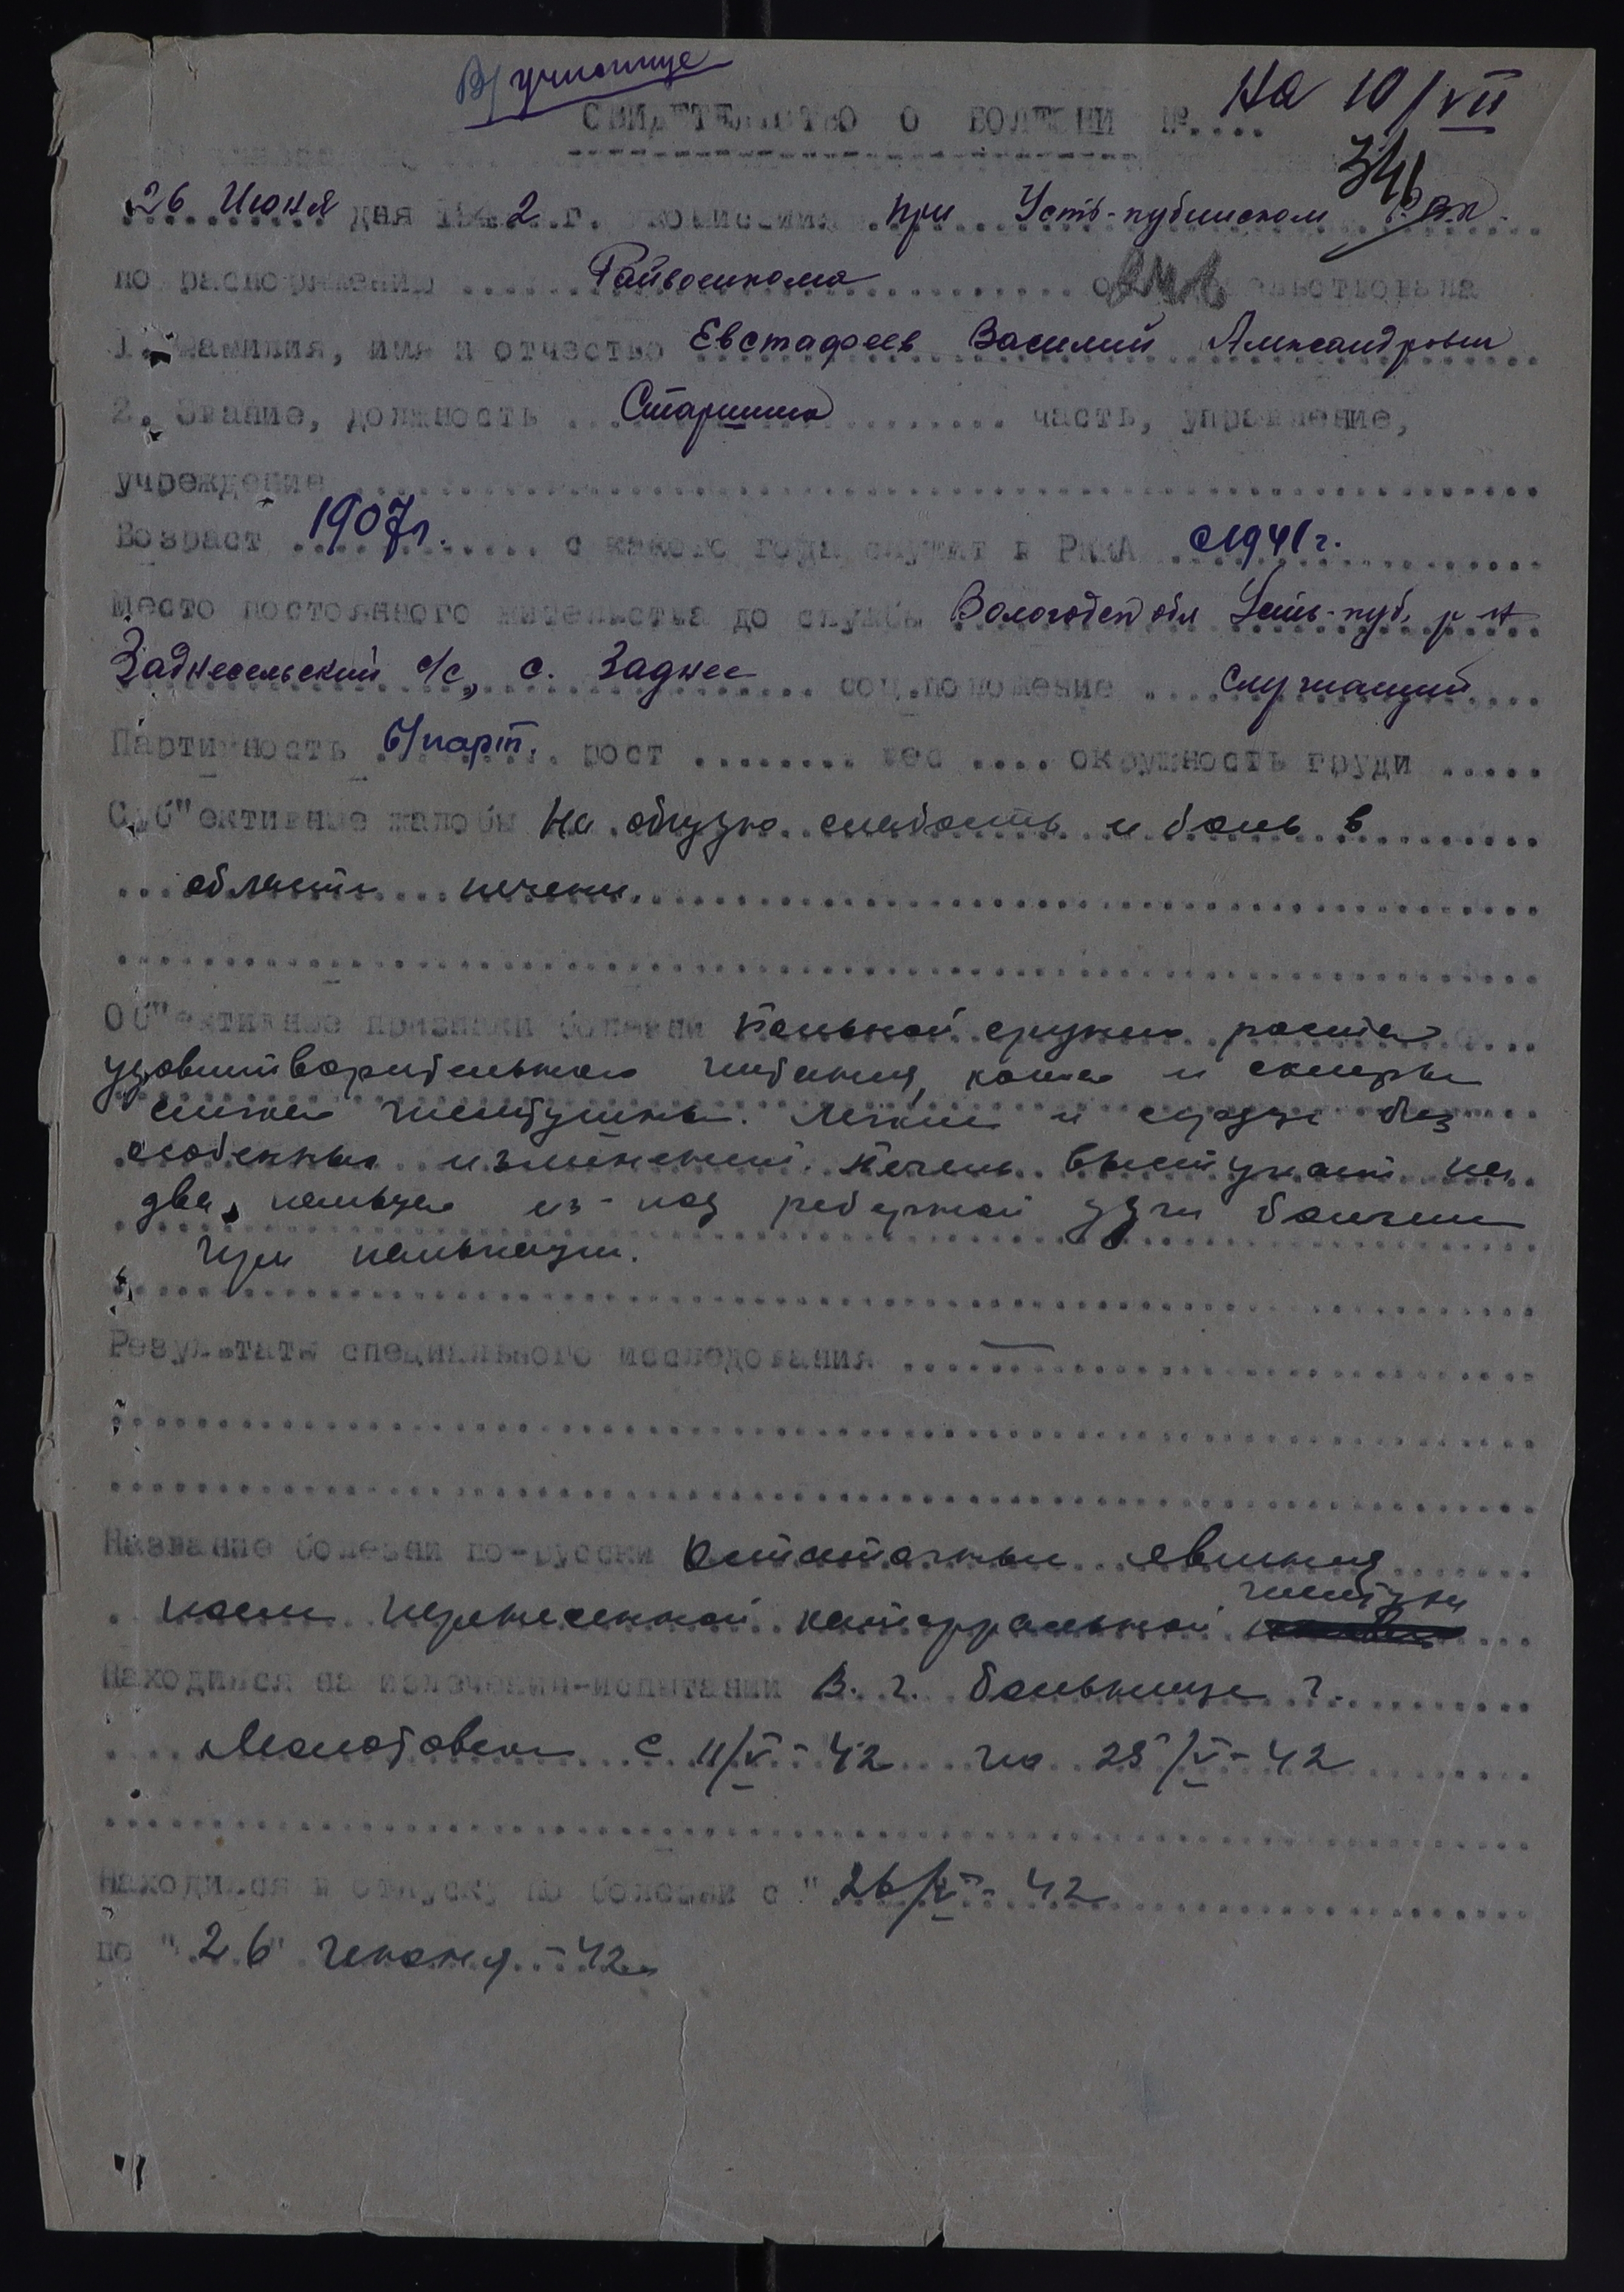 В/училище
На 10/VII
СВИДЕТЕЛЬСТВО О БОЛЕЗНИ №....
341
26 Июня дня 194 2 г. комиссия при Усть-кубинском РВК.
по распоряжению Райвоенкома освидетельствовала
1. Фамилия, имя и отчество Евстафеев Василий Александрович
2. Звание, должность Старшина часть, управление,
учреждение
Возраст 1907 г. с какого года служит в РККА с 1941 г.
место постоянного жительства до службы Вологодск обл Усть-куб. р-н
Заднесельский с/с, с. Заднее соц.положение служащий
Партийность б/парт. рост ........ вес .... окружность груди .....
Суб"ективные жалобы На общую слабость и боль в
области печени.
Об"ективные признаки болезни Больной среднего роста
удовлетворительного питания, кожа и склеры
слегка желтушны. Легкие и сердце без
особенных изменений. Печень выступает на
два пальца из-под реберной дуги болезнен
при пальпации.
Результаты специального исследования —
Название болезни по-русски Остаточные явления
после перенесенной катарральной желтухи
Находился на излечении-испытании В. г. больнице г.
Молотовска с 11/V-42 по 25/V-42
Находился в отпуску по болезни с "26/V-42
по "26" июня-42г